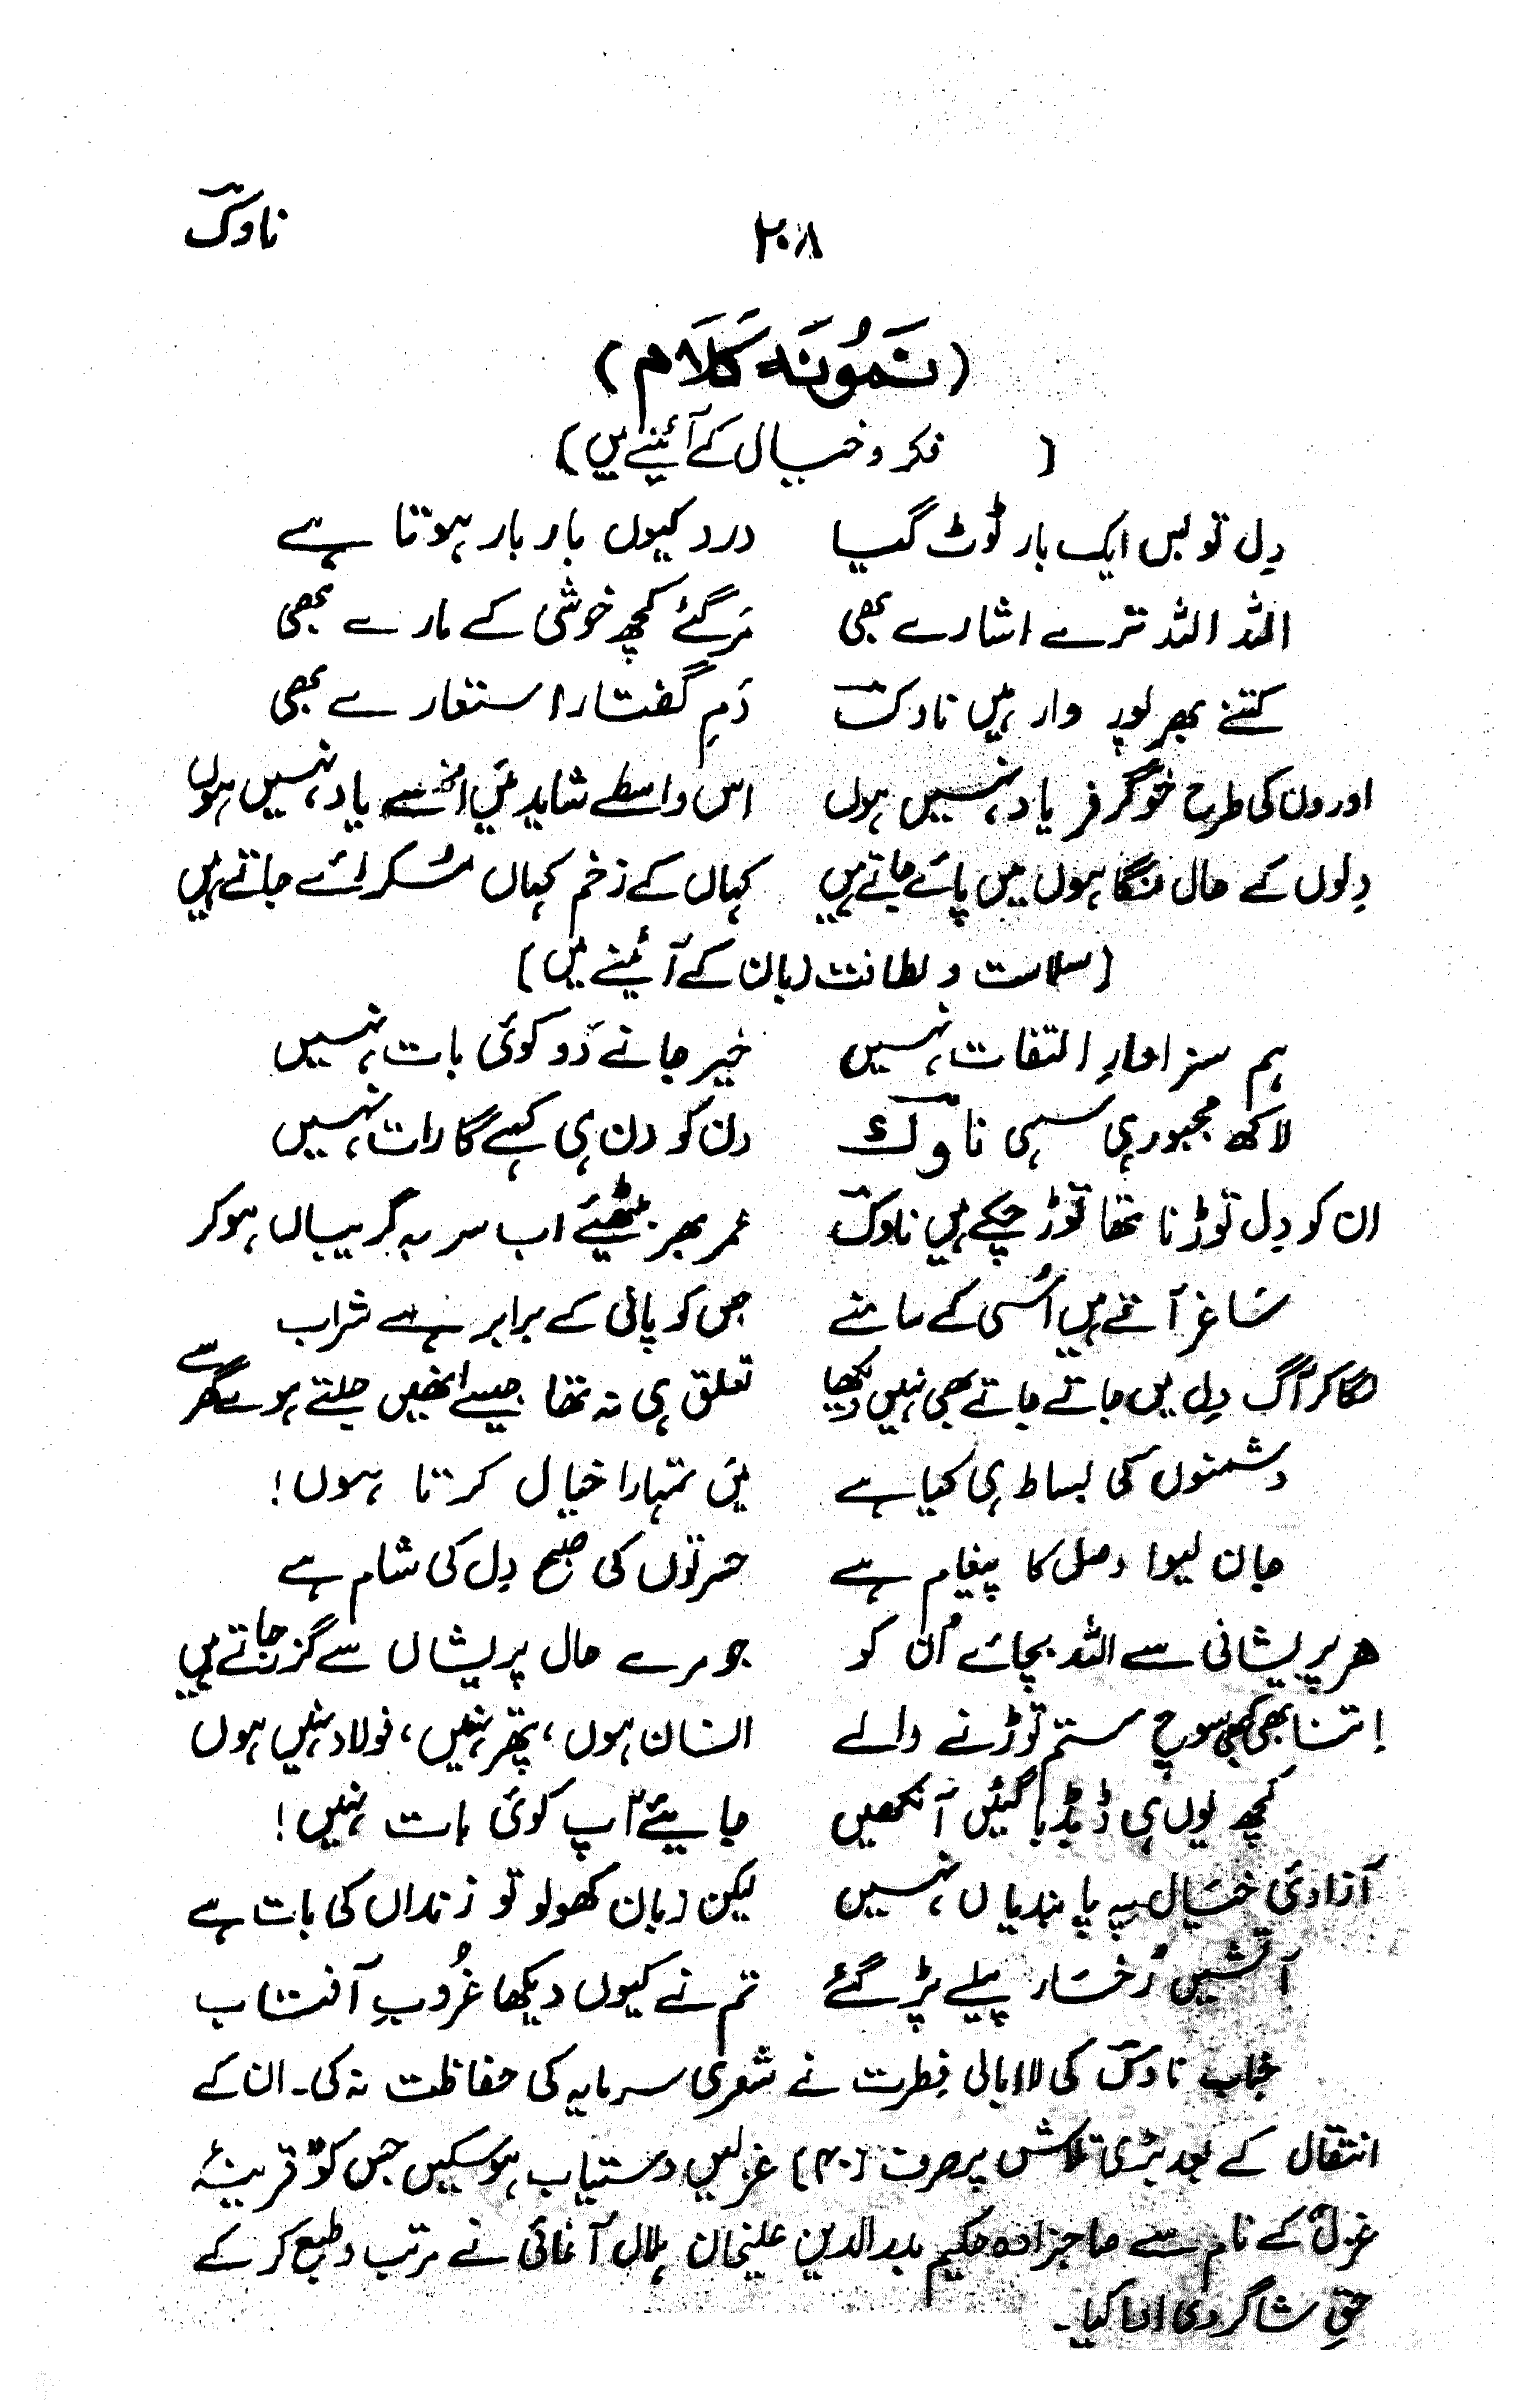 ۲۰۸ ناوکؔ
(نَمُونَہ کَلَام)
( فکر و خیال کے آئینے میں )
دِل تو بس ایک بار ٹوٹ گیا درد کیوں بار بار ہوتا ہے
اللہ اللہ ترے اشارے بھی مَرگئے کچھ خوشی کے مارے بھی
کتنے بھر پور وار ہیں ناوکؔ دَمِ گفتار استعارے بھی
اوروں کی طرح خُوگرِ فریاد نہیں ہوں اس واسطے شاید مَیں اُنھیں یاد نہیں ہوں
دِلوں کے حال نگاہوں میں پائے جاتے ہیں کہاں کے زخم کہاں مُسکرائے جاتے ہیں
(سلاست و لطافت زبان کے آئینے میں)
ہم سزاوارِ التفات نہیں خیر جانے دَو کوئی بات نہیں
لاکھ مجبور ہی سہی ناوکؔ دن کو دن ہی کہے گا رات نہیں
ان کو دِل توڑنا تھا توڑ چکے ہیں ناوکؔ عمر بھر بیٹھیئے اب سر بہ گریباں ہوکر
سَاغر آتے ہیں اُسی کے سامنے جس کو پانی کے برابر ہے شراب
لگا کر آگ دِل میں جاتے جاتے بھی نہیں دیکھا تعلق ہی نہ تھا جیسے انھیں جلتے ہوئے گھر سے
دشمنوں کی بساط ہی کیا ہے مَیں تمہارا خیال کرتا ہوں!
جان لیوا وصل کا پیغام ہے حسرتوں کی صبح دِل کی شام ہے
ھر پریشانی سے اللہ بچائے اُن کو جو مرے حال پریشاں سے گزر جاتے ہیں
اِتنا بھی کبھی سوچ ستم توڑنے والے انسان ہوں، پتھر نہیں، فولاد نہیں ہوں
کچھ یوں ہی ڈبڈبا گئیں آنکھیں جایئے آپ کوئی بات نہیں!
آزادیٔ خیَال پہ پابندیاں نہیں لیکن زبان کھولو تو زنداں کی بات ہے
آتشیں رُخسَار پیلے پڑ گئے تم نے کیوں دیکھا غُروبِ آفتاب
جناب ناوکؔ کی لاابالی فِطرت نے شعری سرمایہ کی حفاظت نہ کی۔ ان کے
انتقال کے بعد بڑی تلاش پر صرف (۴۰) غزلیں دستیاب ہوسکیں جس کو "قرینۂ
غزل" کے نام سے صاحبزادہ حکیم بدرالدین علیخان ہلال آغائی نے مرتب و طبع کرکے
حقِ شاگردی ادا کیا۔